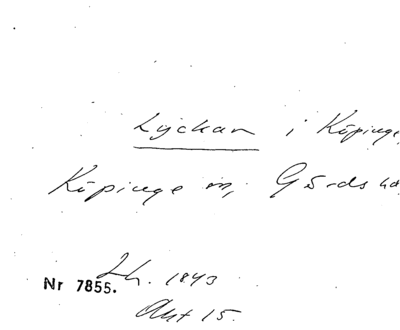 Lyckan i Köpinge,
Köpinge sn, Gärds hd
Lh. 1843
Nr 7855.
Akt 15.